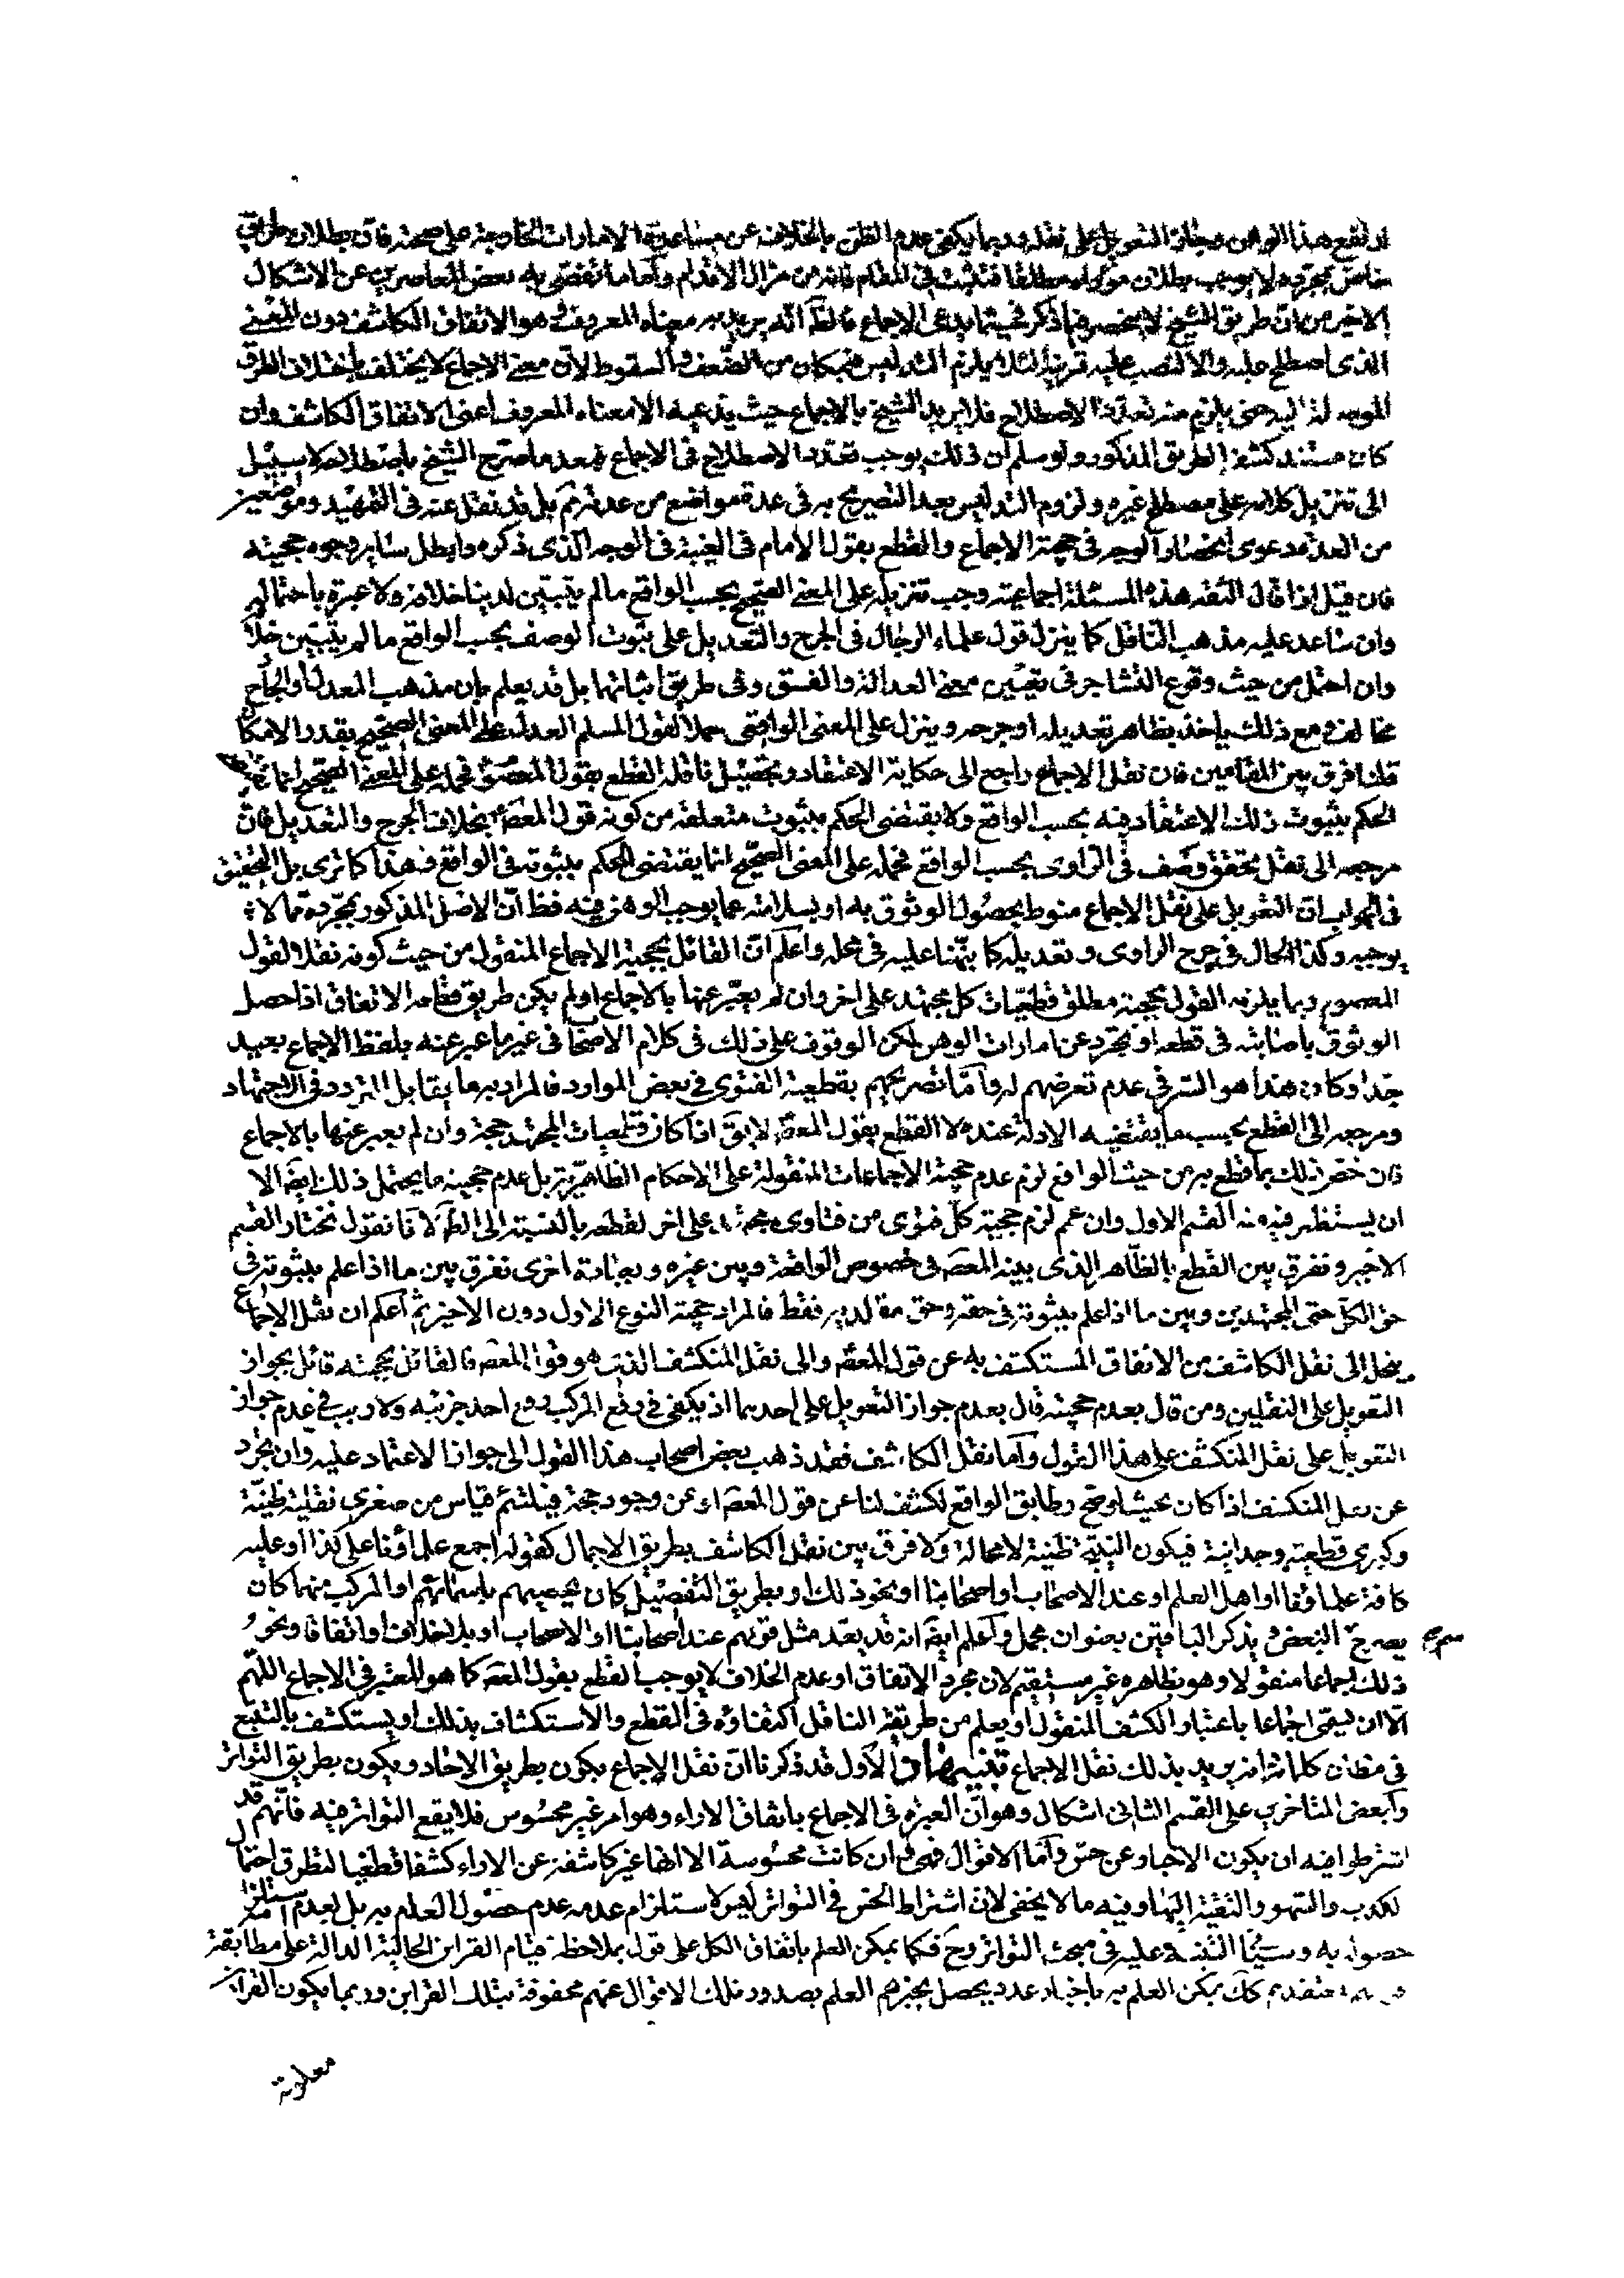 اندفع هذا الوهن وجاز التعويل على نقله وربما يكفى عدم الظن بالخلاف عن مساعدة الامارات الخارجية على صحته فان بطلان طريق
خاص بمجرده لا يوجب بطلان مؤداه مطلقا فتثبت فى المقام فانه من مزال الاقدام واما ما تفصى به بعض المعاصرين عن الاشكال
الاخير من ان طريق الشيخ لا ينحصر فيما ذكر فحيثما يدعى الاجماع فالظ انه يريد به معناه المعروف وهو الاتفاق الكاشف دون المعنى
الذى اصطلح عليه والا لنصب عليه قرينة لئلا يلزم التدليس فبمكان من الضعف والسقوط لان معنى الاجماع لا يختلف باختلاف الطرق
الموصلة اليه حتى يلزم منه تعدد الاصطلاح فلا يريد الشيخ بالاجماع حيث يدعيه الا معناه المعروف اعنى الاتفاق الكاشف وان
كان مستند كشفه الطريق المذكور ولو سلم ان ذلك يوجب تعدد الاصطلاح فى الاجماع فبعد ما صرح الشيخ باصطلاحه لا سبيل
الى تنزيل كلامه على مصطلح غيره ولزوم التدليس بعد التصريح به فى عدة مواضع من عدته ثم بل قد نقل عنه فى التمهيد وموضعين
من العدة دعوى انحصار الوجه فى حجية الاجماع والقطع بقول الامام فى الغيبة فى الوجه الذى ذكره وابطل سائر وجوه حجيته
فان قيل اذا قال الثقة هذه المسئلة اجماعية وجب تنزيله على المعنى الصحيح بحسب الواقع ما لم يتبين لدينا خلافه ولا عبرة باحتماله
وان ساعد عليه مذهب الناقل كما ينزل قول علماء الرجال فى الجرح والتعديل على ثبوت الوصف بحسب الواقع ما لم يتبين خلافه
وان احتمل من حيث وقوع التشاجر فى تعيين معنى العدالة والفسق وفى طريق اثباتها بل قد يعلم بان مذهب المعدل او الجارح
مخالفة ومع ذلك يأخذ بظاهر تعديله او جرحه وينزل على المعنى الواقعى حملا لقول المسلم العدل على المعنى الصحيح بقدر الامكان
قلنا فرق بين المقامين فان نقل الاجماع راجع الى حكاية الاعتقاد وتحصيل ناقله القطع بقول المعصوم فحمله على المعنى الصحيح انما يقتضى
الحكم بثبوت ذلك الاعتقاد فيه بحسب الواقع ولا يقتضى الحكم بثبوت متعلقه من كونه قول المعصوم بخلاف الجرح والتعديل فان
مرجعه الى نقل تحقق وصف فى الراوى بحسب الواقع فحمله على المعنى الصحيح انما يقتضى الحكم بثبوته فى الواقع فهذا كما ترى بل التحقيق
فى الجواب ان التعويل على نقل الاجماع منوط بحصول الوثوق به او بسلامته عما يوجب الوهن فيه فظ ان الاصل المذكور بمجرده مما لا
يوجبه وكذا الحال فى جرح الراوى وتعديله كما نبهنا عليه فى محله واعلم ان القائل بحجية الاجماع المنقول من حيث كونه نقلا لقول
المعصوم ربما يلزمه القول بحجية مطلق قطعيات كل مجتهد على اخر وان لم يعبر عنها بالاجماع او لم يكن طريق قطعه الاتفاق اذا حصل
الوثوق باصابته فى قطعه او تجرد عن امارات الوهن لكن الوقوف على ذلك فى كلام الاصحاب فى غير ما عبر عنه بلفظ الاجماع بعيد
جدا وكان هذا هو السر فى عدم تعرضهم له واما تصريحهم بقطعية الفتوى فى بعض الموارد فالمراد به ما يقابل التردد فى الاجتهاد
ومرجعه الى القطع بحسب ما يقتضيه الادلة عنده لا القطع بقول المعصوم لا يق اذا كان قطعيات المجتهد حجة وان لم يعبر عنها بالاجماع
فان خص ذلك بما قطع به من حيث الواقع لزم عدم حجية الاجماعات المنقولة على الاحكام الظاهرية بل عدم حجية ما يحتمل ذلك ايضا الا
ان يستظهر فيه منه القسم الاول وان عمم لزم حجية كل فتوى من فتاوى مجتهد على اخر لقطعه بالنسبة الى الظ لانا نقول نختار القسم
الاخير ونفرق بين القطع بالظاهر الذى بينه المعصوم فى خصوص الواقعة وبين غيره وبعبارة اخرى نفرق بين ما اذا علم بثبوته فى
حق الكل حتى المجتهدين وبين ما اذا علم بثبوته فى حقه وحق مقلديه فقط فالمراد حجية النوع الاول دون الاخير ثم اعلم ان نقل الاجماع
ينحل الى نقل الكاشف من الاتفاق المستكشف به عن قول المعصوم والى نقل المنكشف الذى هو قول المعصوم فالقائل بحجيته قائل بجواز
التعويل على النقلين ومن قال بعدم حجيته قال بعدم جواز التعويل على احدهما اذ يكفى فى رفع المركب رفع احد جزئيه ولا ريب فى عدم جواز
التعويل على نقل المنكشف على هذا القول واما نقل الكاشف فقد ذهب بعض اصحاب هذا القول الى جواز الاعتماد عليه وان تجرد
عن نقل المنكشف اذا كان بحيث لو صح وطابق الواقع لكشف لنا عن قول المعصوم او عن وجود حجة فيلتئم قياس من صغرى نقلية ظنية
وكبرى قطعية وجدانية فيكون النتيجة ظنية لا محالة ولا فرق بين نقل الكاشف بطريق الاجمال كقوله اجمع علماؤنا على كذا او عليه
كافة علمائنا او اهل العلم او عند الاصحاب او اصحابنا او نحو ذلك او بطريق التفصيل كان يحصيهم باسمائهم او المركب منهما كان
يصرح البعض ويذكر الباقين بعنوان مجمل واعلم ايضا انه قد يعد مثل قولهم عند اصحابنا او الاصحاب او بلا خلاف او اتفاقا ونحو
ذلك اجماعا منقولا وهو بظاهره غير مستقيم لان مجرد الاتفاق او عدم الخلاف لا يوجب القطع بقول المعصوم كما هو المعتبر فى الاجماع اللهم
الا ان يسمى اجماعا باعتبار الكشف المنقول او يعلم من طريقة الناقل اكتفاؤه فى القطع والاستكشاف بذلك او يستكشف بالتتبع
فى مظان كلماته انه يريد بذلك نقل الاجماع تنبيهات الاول قد ذكرنا ان نقل الاجماع يكون بطريق الاحاد ويكون بطريق التواتر
ولبعض المتاخرين على القسم الثانى اشكال وهو ان العبرة فى الاجماع باتفاق الاراء وهو امر غير محسوس فلا يقع التواتر فيه فانهم قد
اشترطوا فيه ان يكون الاخبار عن حس واما الاقوال فهى وان كانت محسوسة الا انها غير كاشفة عن الاراء كشفا قطعيا لتطرق احتمال
الكذب والسهو والتقية اليها وفيه ما لا يخفى لان اشتراط الحس فى التواتر ليس لاستلزام عدمه عدم حصول العلم به بل لعدم استلزامه
حصوله به وسيأتى التنبيه عليه فى مبحث التواتر وح فكما يمكن العلم باتفاق الكل على قول بملاحظة قيام القرائن الحالية الدالة على مطابقة
كك يمكن العلم به باخبار عدد يحصل بخبرهم العلم بصدور تلك الاقوال عنهم محفوفة بتلك القراين وربما يكون القرائن
معلومة